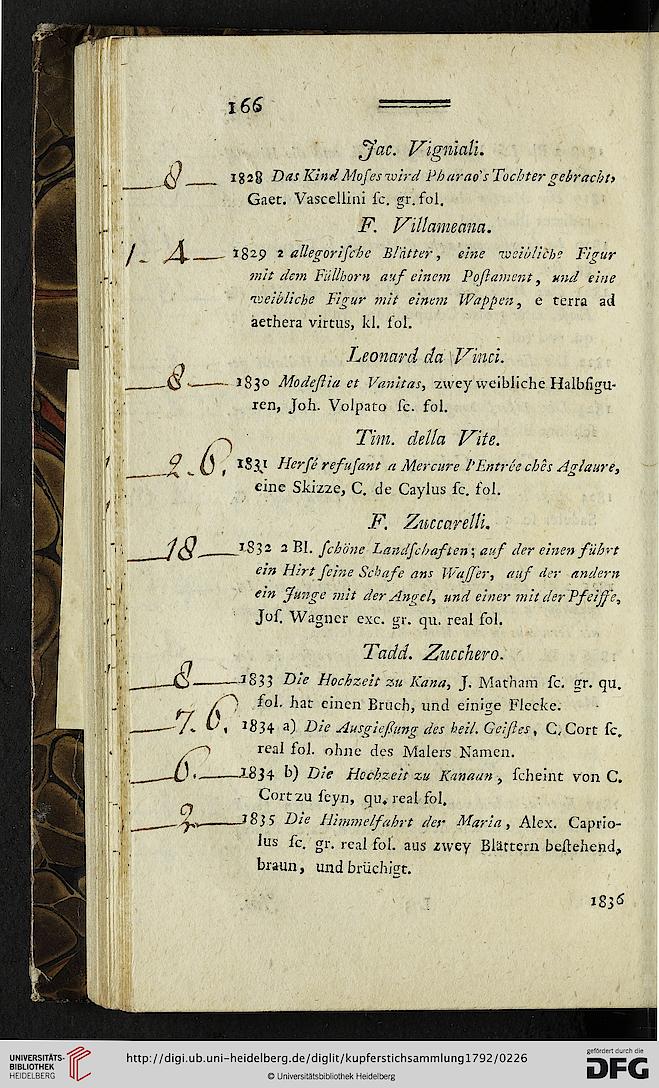 166
Jac. Vigniali.
— 8 — 1828 Das Kind Moſes wird Pharao's Tochter gebracht,
Gaet. Vascellini ſc. gr. fol.
F. Villameana.
1. 4 — 1829 2 allegoriſche Blätter, eine weibliche Figur
mit dem Füllhorn auf einem Poſtament, und eine
weibliche Figur mit einem Wappen, e terra ad
aethera virtus, kl. fol.
Leonard da Vinci.
— 8 — 1830 Modeſtia et Vanitas, zwey weibliche Halbfigu-
ren, Joh. Volpato ſc. fol.
Tim. della Vite.
— 2. 6. 1831 Herſé refuſant a Mercure l'Entrée chês Aglaure,
eine Skizze, C. de Caylus ſc. fol.
F. Zuccarelli.
— 18 — 1832 2 Bl. ſchöne Landſchaften; auf der einen führt
ein Hirt ſeine Schafe ans Waſſer, auf der andern
ein Junge mit der Angel, und einer mit der Pfeiffe,
Joſ. Wagner exc. gr. qu. real fol.
Tadd. Zucchero.
— 8 — 1833 Die Hochzeit zu Kana, J. Matham ſc. gr. qu.
fol. hat einen Bruch, und einige Flecke.
— 7. 6. 1834 a) Die Ausgießung des heil. Geiſtes, C. Cort ſc.
real fol. ohne des Malers Namen.
— 6. — 1834 b) Die Hochzeit zu Kanaan, ſcheint von C.
Cort zu ſeyn, qu. real fol.
— 2. — 1835 Die Himmelfahrt der Maria, Alex. Caprio-
lus ſc. gr. real fol. aus zwey Blättern beſtehend,
braun, und brüchigt.
1836
UNIVERSITÄTS-
BIBLIOTHEK
HEIDELBERG
http://digi.ub.uni-heidelberg.de/diglit/kupferstichsammlung1792/0226
© Universitätsbibliothek Heidelberg
gefördert durch die
DFG